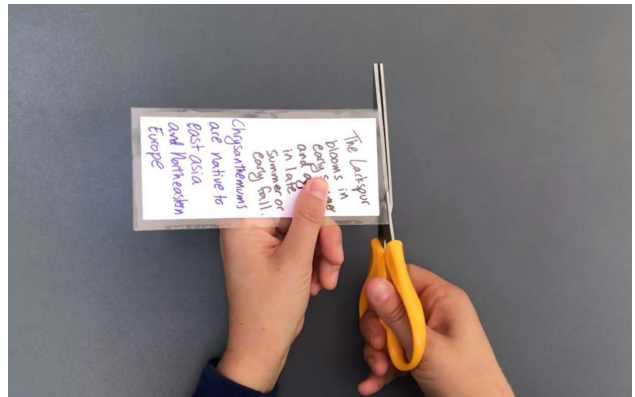 The Larkspur
blooms in
early
and
in late
summer or
early fall.
Chrysanthemums
are native to
east asia
and Northeastern
Europe